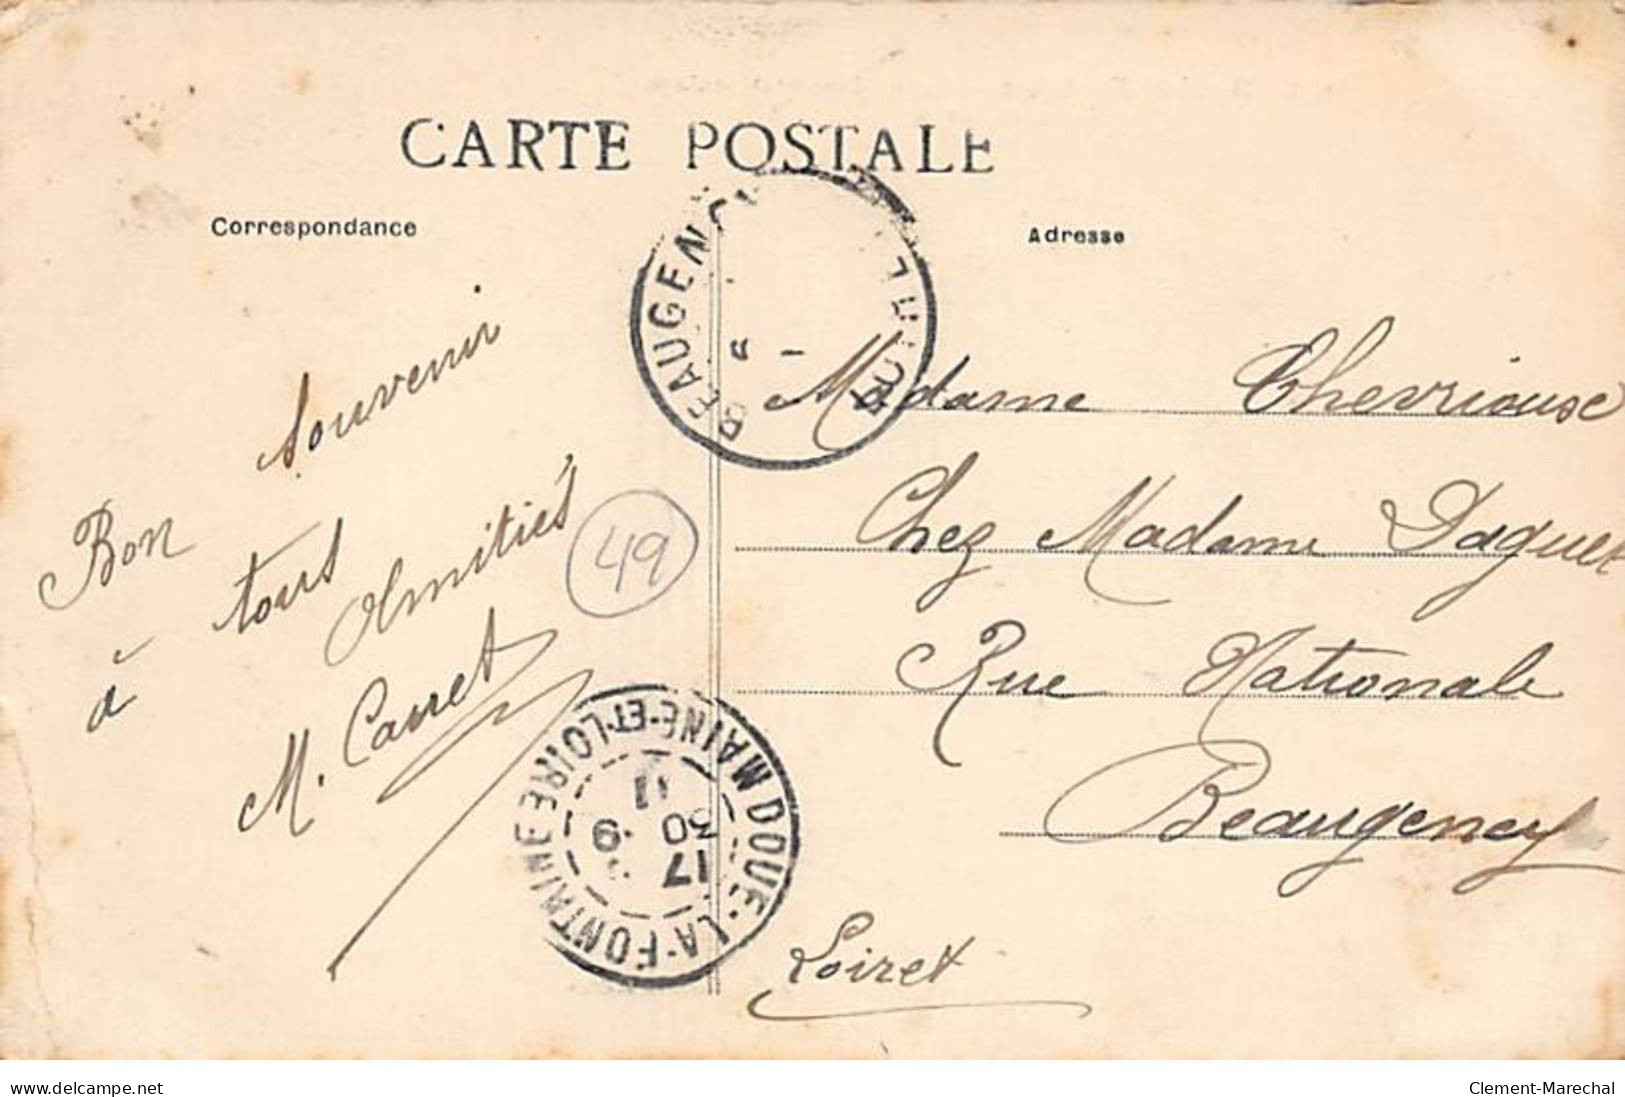 CARTE POSTALE
Correspondance
Adresse
BEAUGENCY
LOIRET
Bon souvenir
à tous
Amitiés
M. Carret
49
Madame Chevriouse
Chez Madame Daguet
Rue Nationale
Beaugency
Loiret
DOUE-LA-FONTAINE MAINE-ET-LOIRE
17
30 9
11
www.delcampe.net
Clement-Marechal